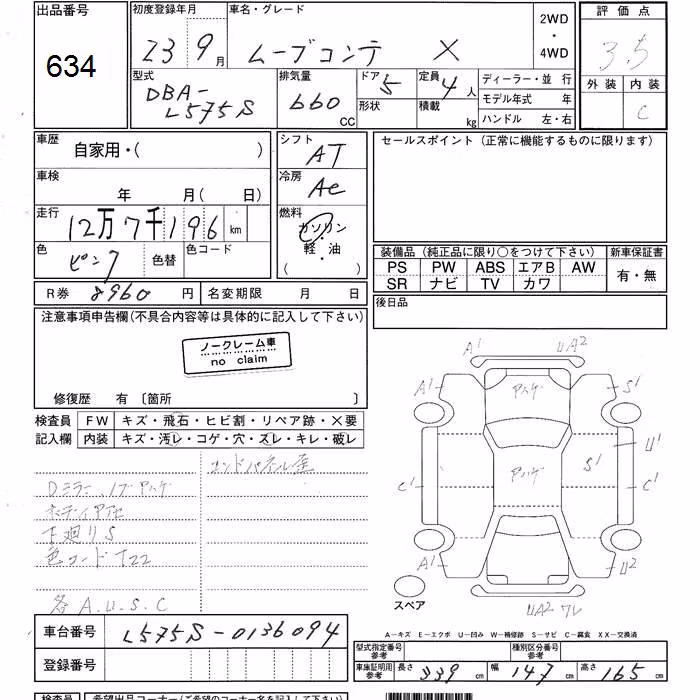 出品番号 初度登録年月 車名・グレード 2WD・4WD 評価点
634 23 9月 ムーブコンテ X 3.5
型式 排気量 ドア 定員 ディーラー・並 行 外装 内装
DBA-L575S 660 CC 5 4人 モデル年式 年 C
形状 積載 kg ハンドル 左・右
車歴 シフト セールスポイント(正常に機能するものに限ります)
自家用・( ) AT
車検 冷房
年 月(日) AC
走行 燃料
12万7千196 km ガソリン・軽・油
( )
色 ピンク 色替 色コード
装備品(純正品に限り○をつけて下さい) 新車保証書
PS PW ABS エアB AW 有・無
SR ナビ TV カワ
R券 8960 円 名変期限 月 日 後日品
注意事項申告欄(不具合内容等は具体的に記入して下さい)
ノークレーム車
no claim
修復歴 有 〔箇所 〕
検査員 FW キズ・飛石・ヒビ割・リペア跡・X要
記入欄 内装 キズ・汚レ・コゲ・穴・スレ・キレ・破レ
エンドパネル歪
Dミラー、ノブアハゲ
ボディアセ
下廻りS
色コードT22
各A.U.S.C
A1 UA2
A1 アハゲ S1
U1
C1 アハゲ S1 C1
A1 U2
スペア UA2 ワレ
A-キズ E-エクボ U-凹み W-補修跡 S-サビ C-腐食 XX-交換済
車台番号 L575S-0136094
登録番号
型式指定番号 参考 種別区分番号 参考
車庫証明用 参考 長さ 339 cm 幅 147 cm 高さ 165 cm
検査員 希望出品コーナー(ご希望のコーナー名を記入下さい)